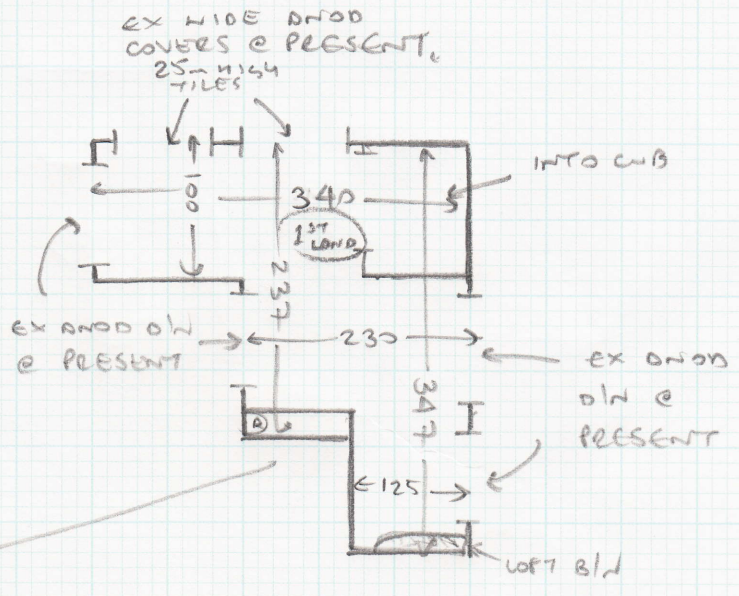 EX WIDE DNOD
COVERS @ PRESENT.
25m HIGH
TILES
INTO CUB
100
340
1ST
LAND
237
EX DNOD D/N
@ PRESENT
230
EX DNOD
D/N @
PRESENT
347
R
125
LOFT B/N